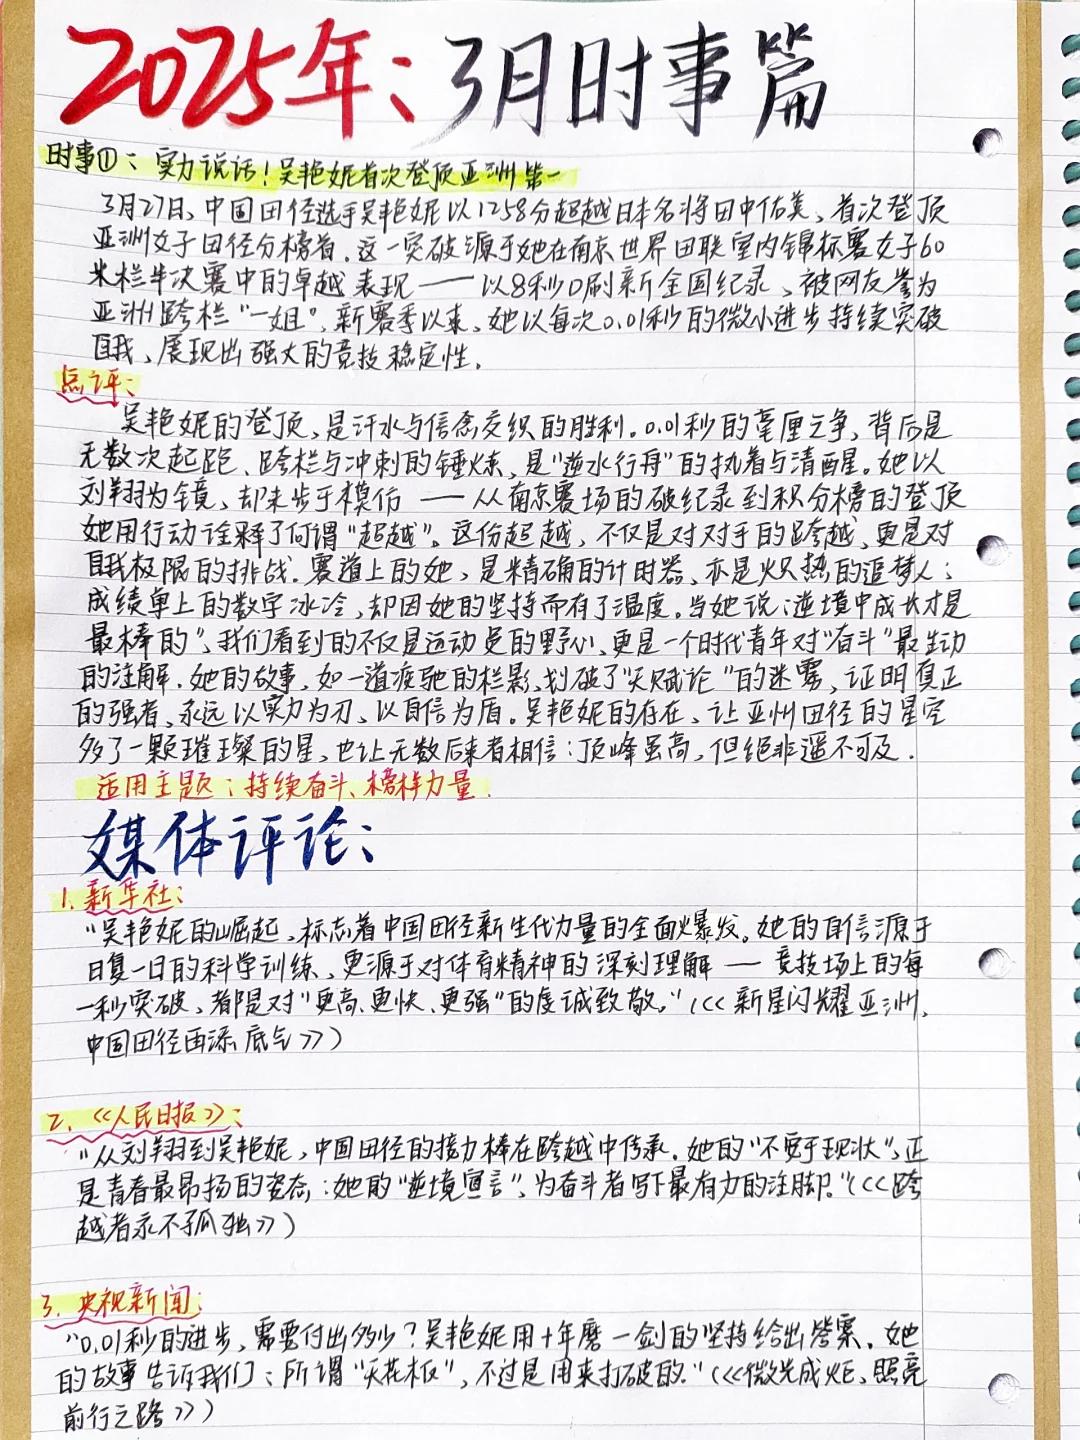 2025年:3月时事篇
时事①:实力说话!吴艳妮首次登顶亚洲第一
3月27日,中国田径选手吴艳妮以1258分超越日本名将田中佑美,首次登顶
亚洲女子田径分榜首.这一突破源于她在南京世界田联室内锦标赛女子60
米栏半决赛中的卓越表现——以8秒01刷新全国纪录,被网友誉为
亚洲跨栏"一姐".新赛季以来,她以每次0.01秒的微小进步持续突破
自我,展现出强大的竞技稳定性.
点评:
吴艳妮的登顶,是汗水与信念交织的胜利。0.01秒的毫厘之争,背后是
无数次起跑、跨栏与冲刺的锤炼,是"逆水行舟"的执着与清醒。她以
刘翔为镜,却未步于模仿——从南京赛场的破纪录到积分榜的登顶
她用行动诠释了何谓"超越"。这份超越,不仅是对对手的跨越,更是对
自我极限的挑战.赛道上的她,是精确的计时器,亦是炽热的追梦人;
成绩单上的数字冰冷,却因她的坚持而有了温度。当她说:逆境中成长才是
最棒的",我们看到的不仅是运动员的野心,更是一个时代青年对"奋斗"最生动
的注解.她的故事,如一道疾驰的栏影,划破了"天赋论"的迷雾,证明真正
的强者,永远以实力为刃,以自信为盾。吴艳妮的存在,让亚州田径的星空
多了一颗璀璨的星,也让无数后来者相信:顶峰虽高,但绝非遥不可及.
适用主题:持续奋斗、榜样力量.
媒体评论:
1.新华社:
"吴艳妮的崛起,标志着中国田径新生代力量的全面爆发。她的自信源于
日复一日的科学训练,更源于对体育精神的深刻理解——竞技场上的每
一秒突破,都是对"更高、更快、更强"的虔诚致敬。"(《新星闪耀亚洲,
中国田径再添底气》)
2.《人民日报》:
"从刘翔到吴艳妮,中国田径的接力棒在跨越中传承.她的"不安于现状",正
是青春最昂扬的姿态;她的"逆境宣言",为奋斗者写下最有力的注脚."(《跨
越者永不孤独》)
3.央视新闻:
"0.01秒的进步,需要付出多少?吴艳妮用十年磨一剑的坚持给出答案.她
的故事告诉我们:所谓"天花板",不过是用来打破的."(《微光成炬,照亮
前行之路》)